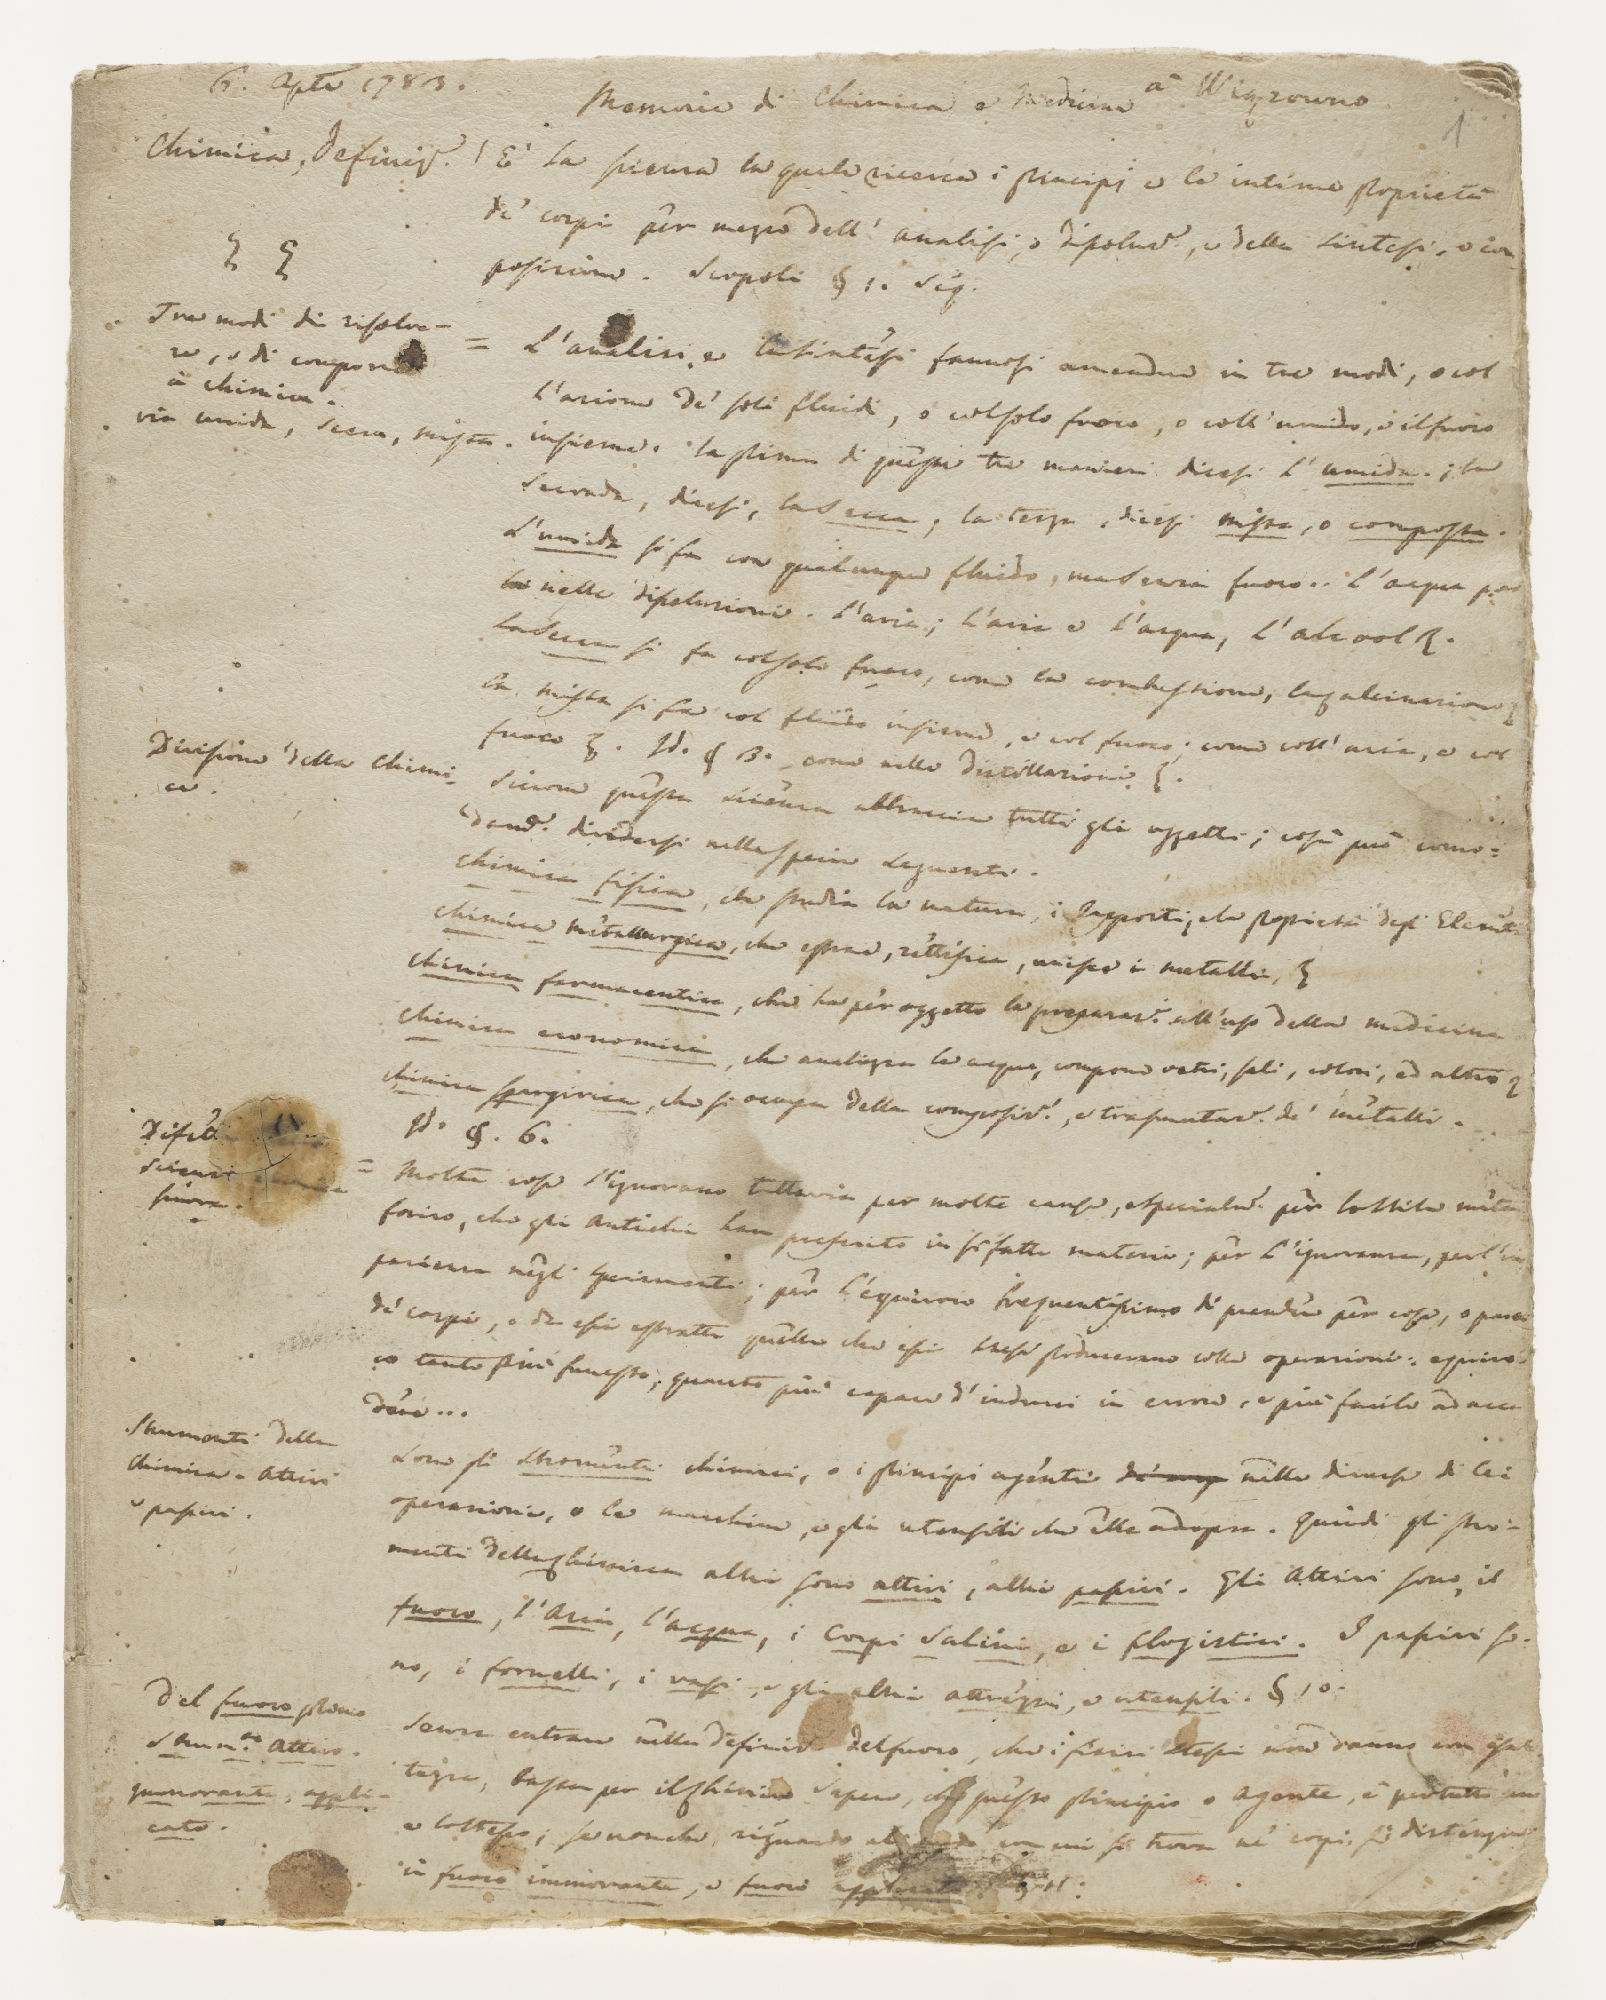 6. 1783.
Memorie di Chimica e Medicina a
1
Chimica, Definiz.e
E' la scienza la quale ricerca i principj e le intime proprietà
de' corpi per mezzo dell' analisi, o dissoluz.e, e della sintesi, o com
posizione. Scopoli § 1. Seg.
Tre modi di risolve-
re, e di comporre
a chimica.
via umida, secca, mista.
= L'analisi, e la sintesi fannosi amendue in tre modi, o col
l'azione de' soli fluidi, o col solo fuoco, o coll' umido, e il fuoco
insieme. la prima di queste tre manieri dicesi l'umida; la
seconda, dicesi, la secca, la terza, dicesi mista, o composta.
L'umida si fa con qualunque fluido, ma senza fuoco. l'acqua
nelle dissoluzioni. l'aria; l'aria e l'acqua, l'alcool
La secca si fa col solo fuoco, come la combustione, la calcinazione
La mista si fa col fluido insieme, e col fuoco; come coll' aria, e col
fuoco. Id. § 3. come nelle distillazioni
Divisione della Chimi-
ca.
Siccome questa scienza abbraccia tutti gli oggetti; così può como-
dam.e dividersi nelle specie seguenti.
Chimica fisica, che studia la natura, i rapporti, e le proprietà degl' Elementi
Chimica metallurgica, che estrae, rettifica, unisce i metalli,
Chimica farmaceutica, che ha per oggetto le preparaz.i all'uso della medicina
Chimica economica, che analizza le acque, compone vetri, sali, colori, ed altro
Chimica spargirica, che si occupa della composiz.e, e trasmutaz.e de' metalli.
Id. §. 6.
= Molte cose s'ignorano tuttavia per molte cause, e specialm.e per lo stile meta
forico, che gli Antichi han preferito in sì fatte materie; per l'ignoranza, per l'im
pazienza negli sperimenti; per l'equivoco frequentissimo di prendere per cose, o parti
de' corpi, o da essi estratte quelle che essi stessi producevano colle operazioni: equivo-
co tanto più funesto, quanto più capace d'indurci in errore, e più facile ad acca
dere...
Strumenti della
Chimica. Attivi
e passivi.
Sono gli stromenti chimici, o i principj agenti nelle diverse di lei
operazioni, o le macchine, e gli utensili che ella adopra. Quindi gli stro-
menti della chimica altri sono attivi, altri passivi. Gli Attivi sono, il
fuoco, l'Aria, l'acqua, i Corpi Salini, e i flogistici. I passivi so-
no, i fornelli, i vasi, e gli altri attrezzi, e utensili. § 10.
Del fuoco primo
Strum.to Attivo.
immorante, appli-
cato.
Senza entrare nella definiz.e del fuoco, che i fisici stessi non danno con esat
tezza, basta per il chimico sapere, che questo principio o Agente, è per tutto uno
e lo stesso; se non che, riguardo al modo con cui si trova ne' corpi, si distingue
in fuoco immorante, e fuoco applicato. § 11.